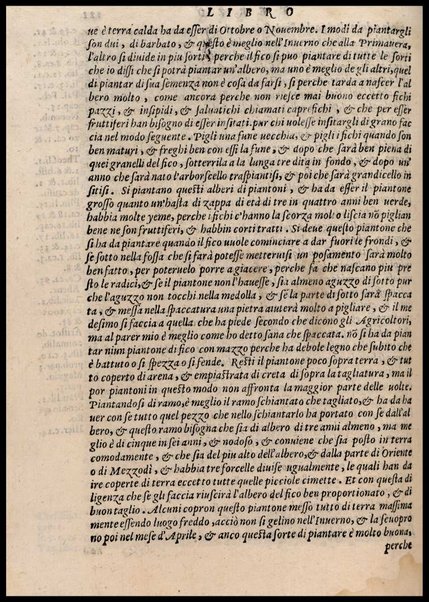 LIBRO
ue è terra calda ha da esser di Ottobre o Nouembre. I modi da piantargli
son dui, di barbato, & questo è meglio nell'Inuerno che alla Primauera,
l'altro si diuide in piu sorti, perche il fico si puo piantar di tutte le sorti
che io dissi che si potrà piantar un'albero, ma uno è meglio degli altri, quel
di piantar di sua semenza non è cosa da farsi, si perche tarda a nascer l'al
bero molto, come ancora perche non riesce mai buono eccetto fichi
pazzi, & insipidi, & saluatichi chiamati caprifichi, & che per esser
fruttiferi han bisogno di esser insitati. pur chi uolesse insitargli di grano fac
cia nel modo seguente. Pigli una fune uecchia, & pigli i fichi quando son
ben maturi, & freghi ben con essi la fune, & dopo che sarà ben piena di
quei granelli del fico, sotterrila a la lunga tre dita in fondo, & dopo un'
anno che sarà nato l'arboscello traspiantisi, & poi che sarà grandicello in
sitisi. Si piantano questi alberi di piantoni, & ha da esser il piantone
grosso quanto un'hasta di zappa di età di tre in quattro anni ben uerde,
habbia molte yeme, perche i fichi c'hanno la scorza molto liscia nõ piglian
bene ne son fruttiferi, & habbin corti tratti. Si deue questo piantone che
si ha da piantare quando il fico uuole cominciare a dar fuori le frondi, &
se sotto nella fossa che si farà potesse metterui si un posamento sarà molto
ben fatto, per poteruelo porre a giacere, perche fa che nascan piu pre
sto le radici, & se il piantone non l'hauesse, sia almeno aguzzo di sotto pur
che l'aguzzo non tocchi nella medolla, & se la parte di sotto sarà spacca
ta, & messa nella spaccatura una pietra aiuterà molto a pigliare, & il me
desimo si faccia a quella che ha piede secondo che dicono gli Agricoltori,
ma al parer mio è meglio come ho detto sana che spaccata. nõ si ha da pian
tar niun piantone di fico con mazzo perche ha debole legno che subito che
è battuto o si spezza o si fende. Resti il piantone poco sopra terra, & tut
to coperto di arena, & empiastrata di creta di sopra la tagliatura, ma il
por piantoni in questo modo non affronta la maggior parte delle uolte.
Piantandosi di ramo, è meglio il ramo schiantato che tagliato, & ha da ha
uer con se tutto quel pezzo che nello schiantarlo ha portato con se dall'al
bero, & questo ramo bisogna che sia di albero di tre anni almeno, ma me
glio è di cinque in sei anni, & nodoso, & conuiene che sia posto in terra
comodamente, & che sia del piu alto dell'albero, & dalla parte di Oriente
o di Mezzodì, & habbia tre forcelle diuise ugualmente, le quali han da
ire coperte di terra eccetto tutte quelle picciole cimette. Et con questa di
ligenza che se gli faccia riuscirà l'albero del fico ben proportionato, & di
buon taglio. Alcuni copron questo piantone messo tutto di terra massima
mente essendo luogo freddo, acciò non si gelino nell'Inuerno, & la scuopro
no poi nel mese d'Aprile, & anco questa sorte di piantare è molto buona,
perche